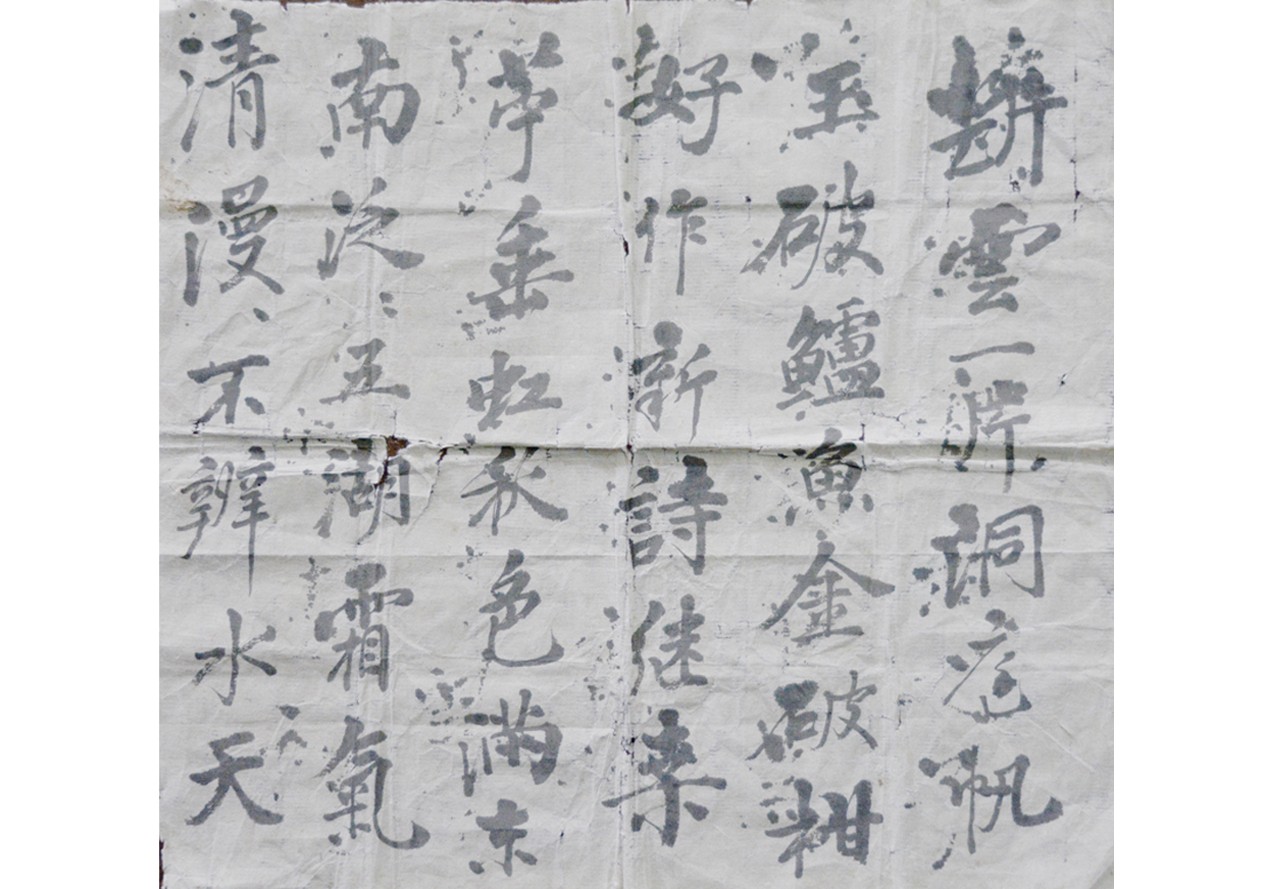 斷雲一片洞庭帆
玉破鱸魚金破柑
好作新詩継桒
苧垂虹秋色満東
南泛〻五湖霜氣
清漫〻不辨水天